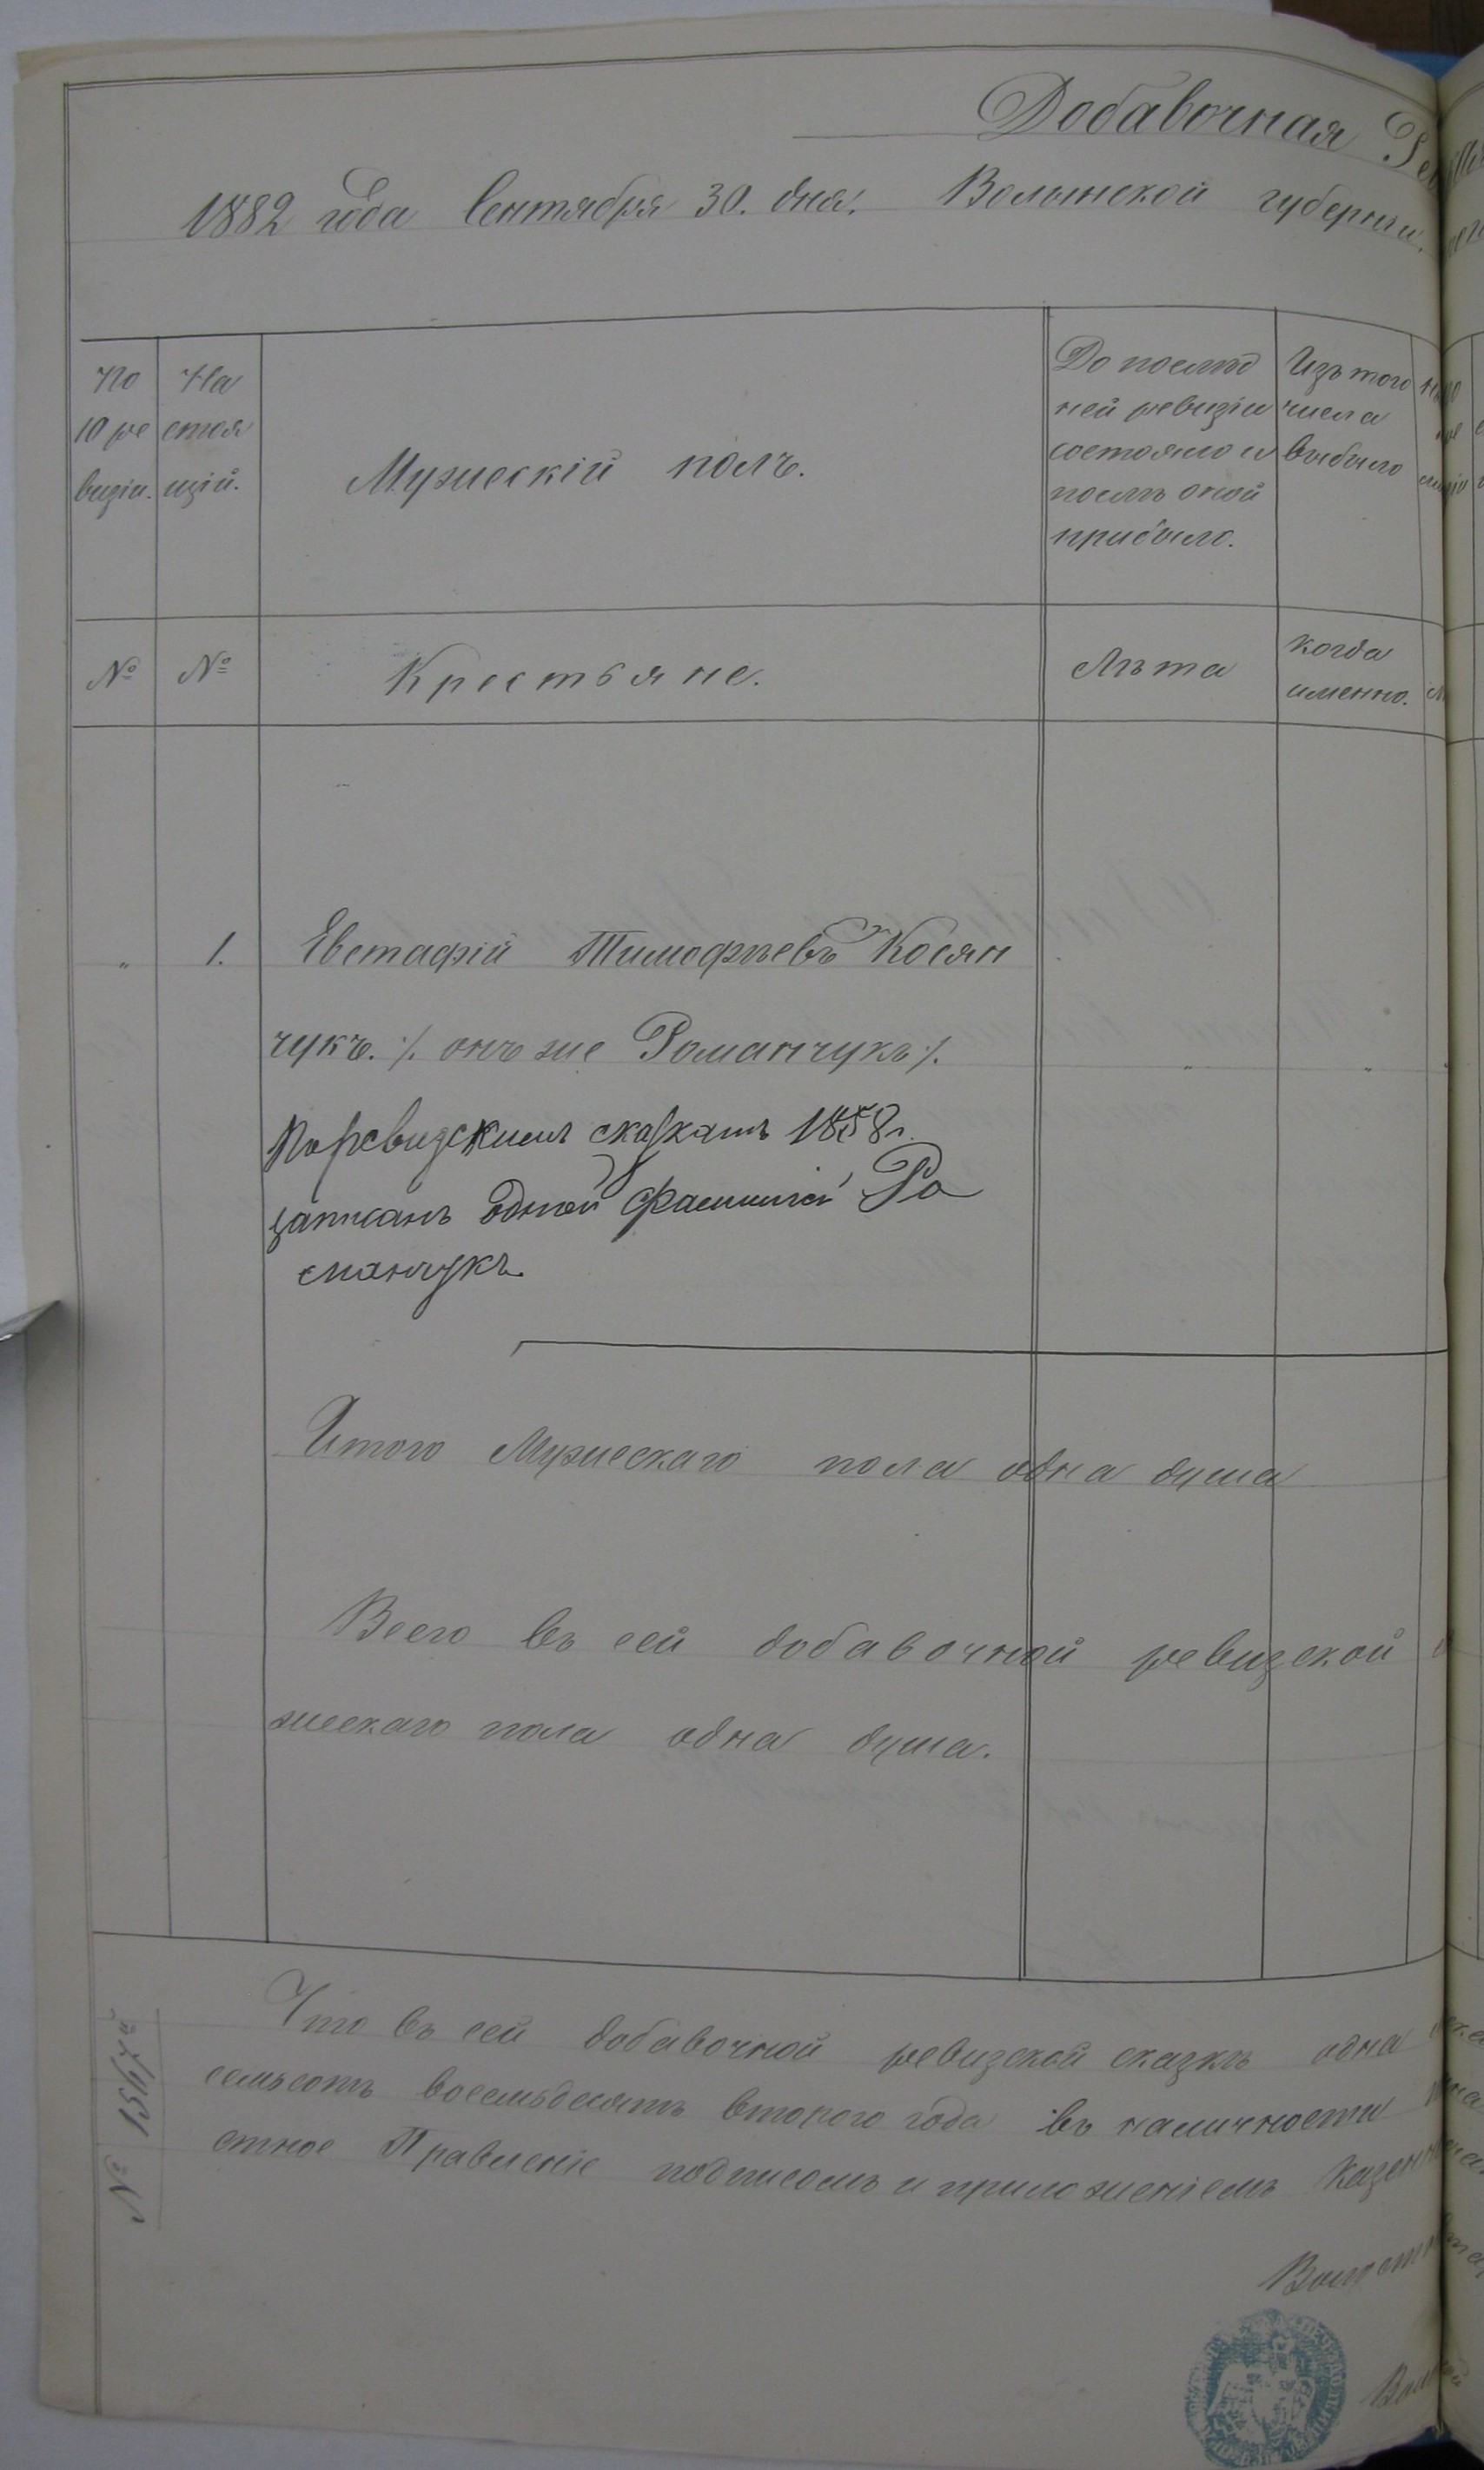 Добавочная Рев
1882 года Сентября 30. дня. Волынской губерніи,
По 10 ревизіи.
Настоящій.
Мужескій полъ.
До послѣд
ней ревизіи
состояло и
послѣ оной
прибыло.
Изъ того
числа
выбыло
№
№
Крестьяне.
Лѣта
когда
именно.
„ 1. Евстафій Тимофѣевъ Косян
чукъ. ⁒ онъ же Романчукъ ⁒.
По ревизскимъ сказкамъ 1858 г.
записанъ одной фамиліей Ро
манчукъ.
Итого Мужескаго пола одна душа
Всего въ сей добавочной ревизской
жескаго пола одна душа.
Что въ сей добавочной ревизской сказкѣ одна
семьсотъ восемьдесятъ второго года въ наличности
стное Правленіе подписомъ и приложеніемъ казенн
Волостн
№ 1567й